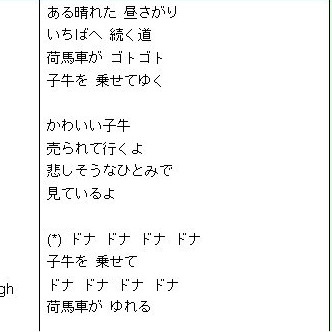 ある晴れた 昼さがり
いちばへ 続く道
荷馬車が ゴトゴト
子牛を 乗せてゆく
かわいい子牛
売られて行くよ
悲しそうなひとみで
見ているよ
(*) ドナ ドナ ドナ ドナ
子牛を 乗せて
gh
ドナ ドナ ドナ ドナ
荷馬車が ゆれる